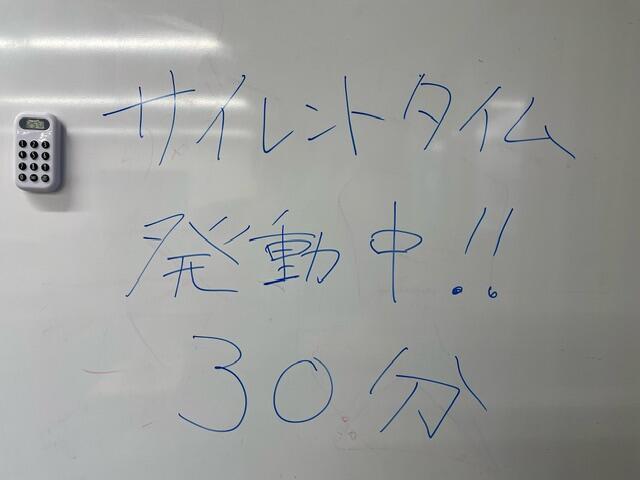 サイレントタイム
発動中!!
30分